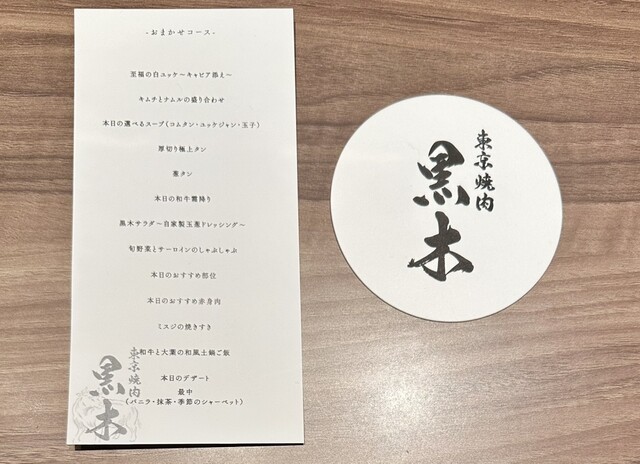 -おまかせコース-
至福の白ユッケ～キャビア添え～
キムチとナムルの盛り合わせ
本日の選べるスープ(コムタン・ユッケジャン・玉子)
厚切り極上タン
葱タン
本日の和牛霜降り
黒木サラダ～自家製玉葱ドレッシング～
旬野菜とサーロインのしゃぶしゃぶ
本日のおすすめ部位
本日のおすすめ赤身肉
ミスジの焼きすき
和牛と大葉の和風土鍋ご飯
本日のデザート
最中
(バニラ・抹茶・季節のシャーベット)
東京焼肉
黒木
東京焼肉
黒木